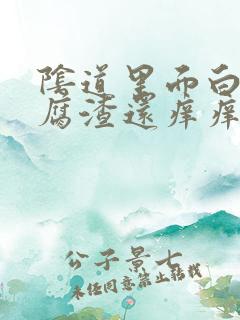 陰道里而白
腐渣還痒痒
公子景七
未经同意禁止转载